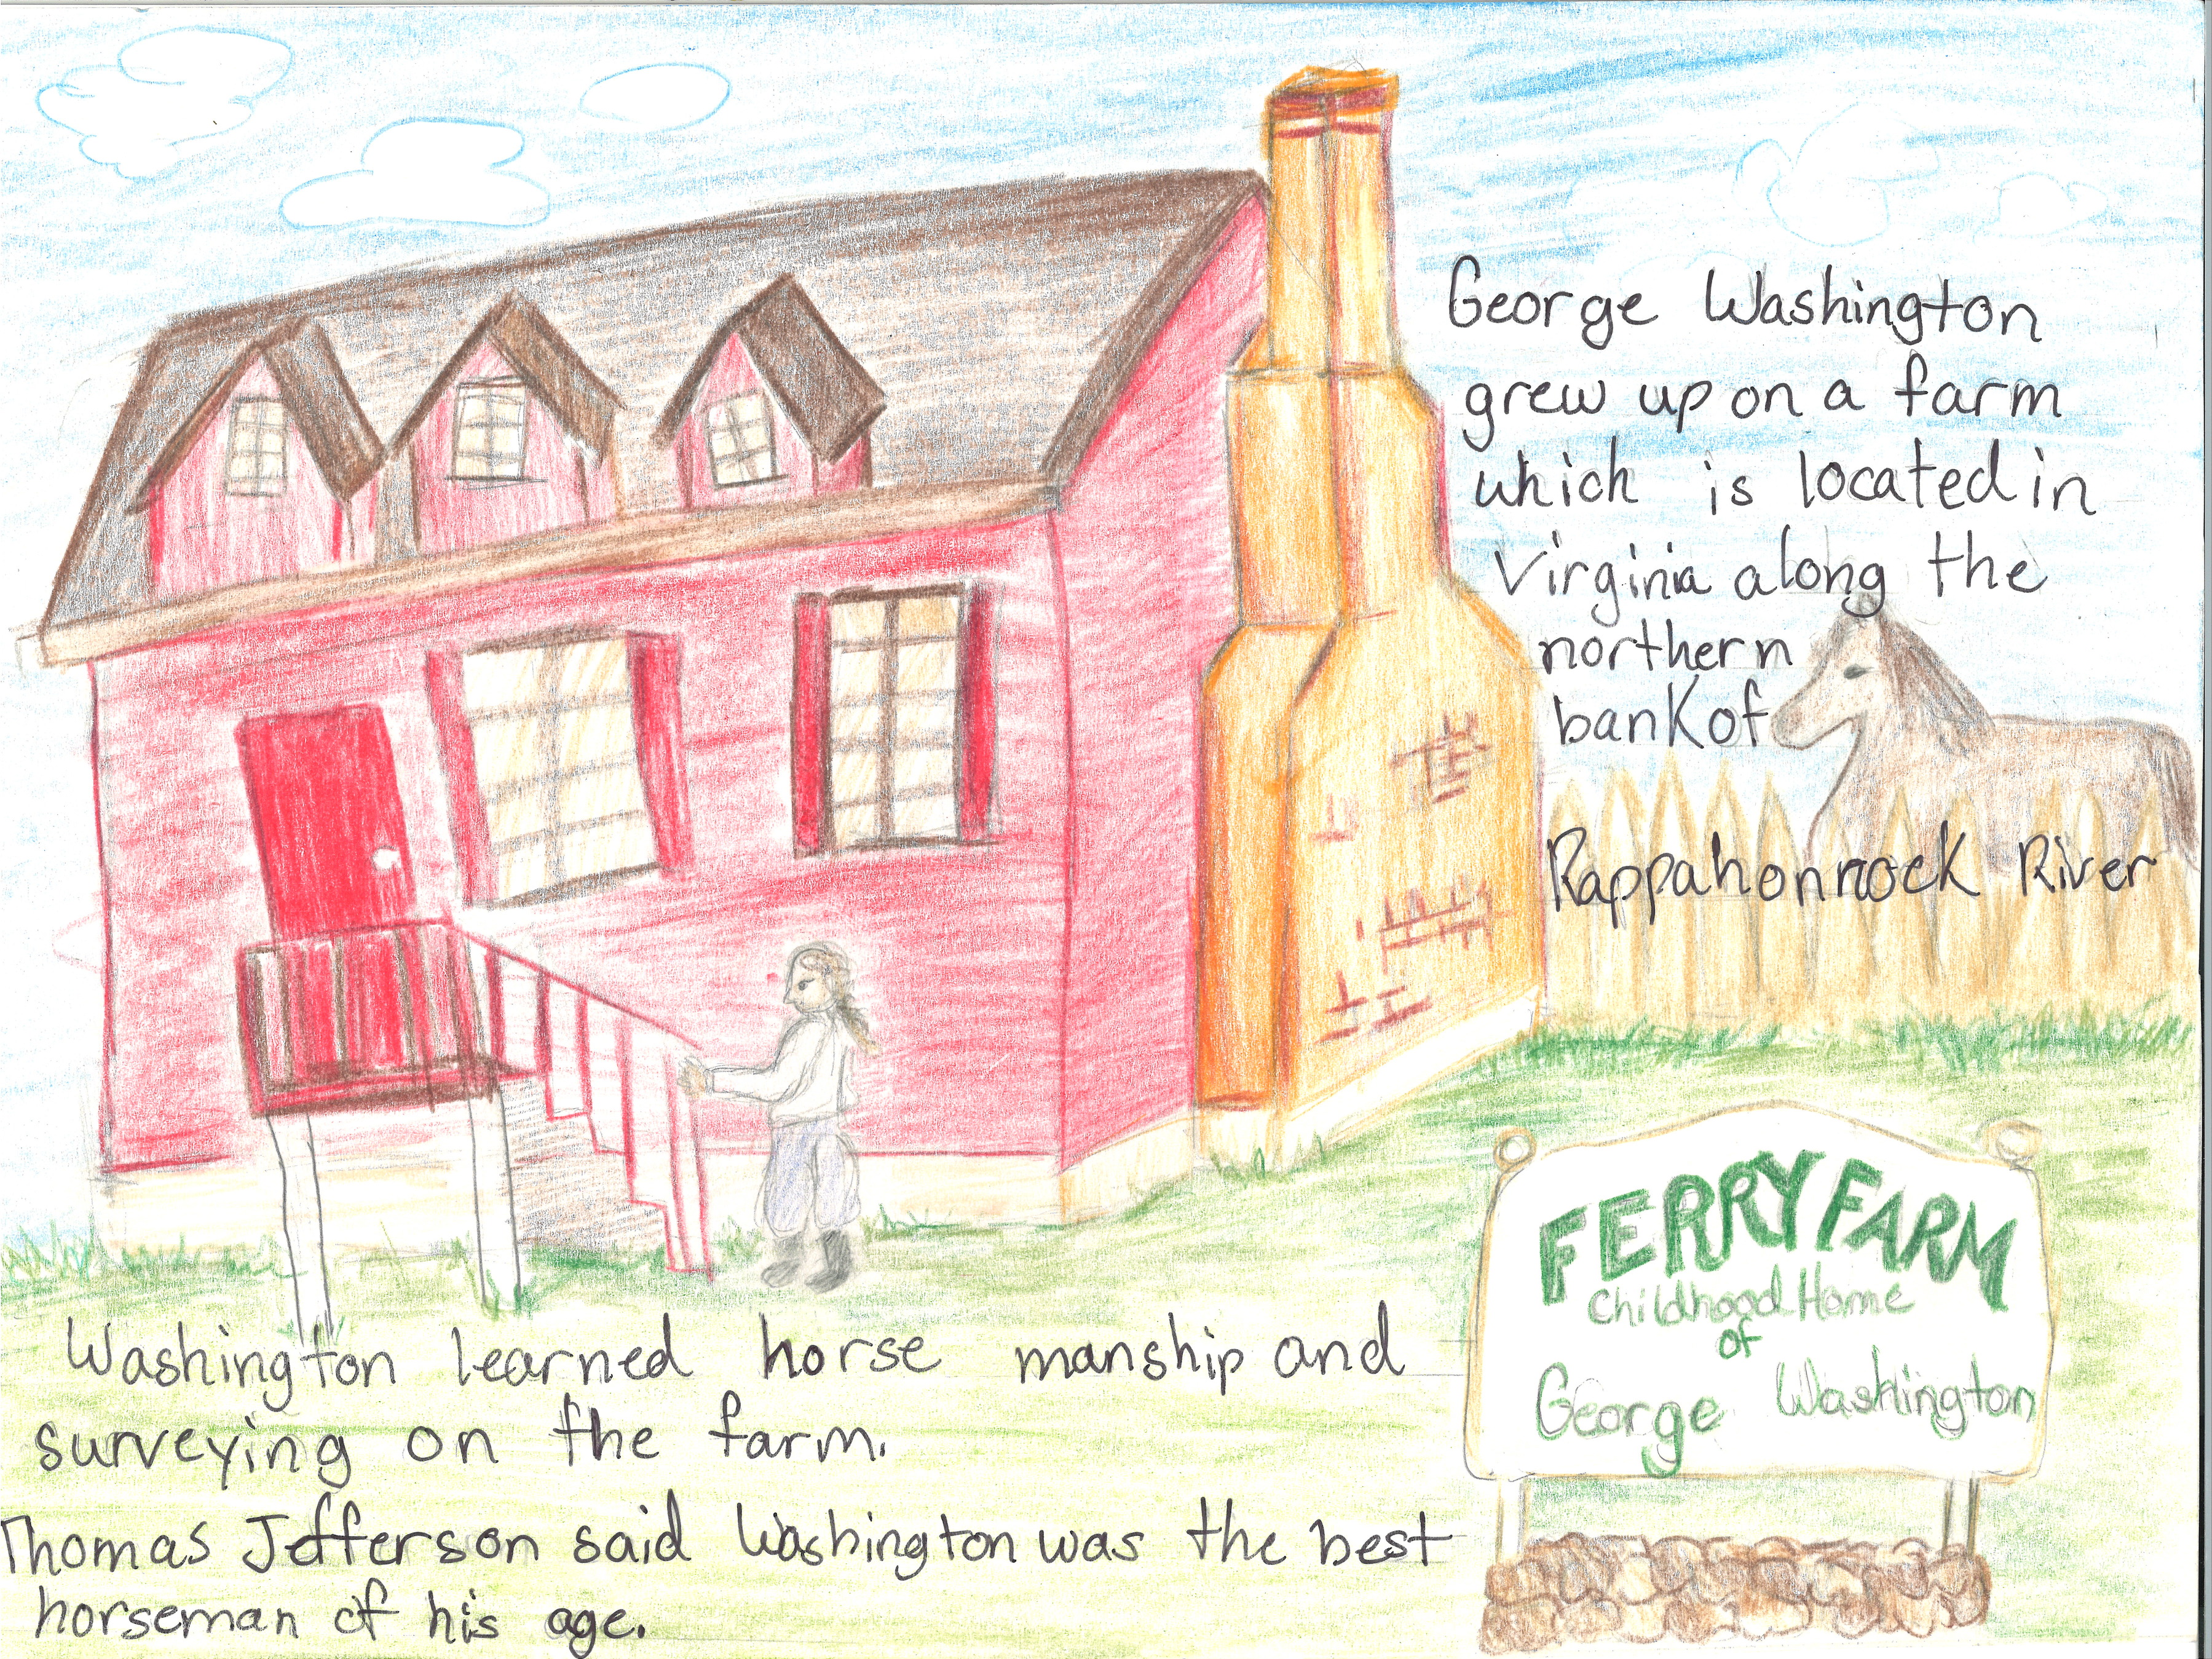 George Washington
grew up on a farm
which is located in
Virginia along the
northern
bank of
Rappahonnock River
FERRY FARM
Childhood Home
of
George Washington
Washington learned horse manship and
surveying on the farm.
Thomas Jefferson said Washington was the best
horseman of his age.